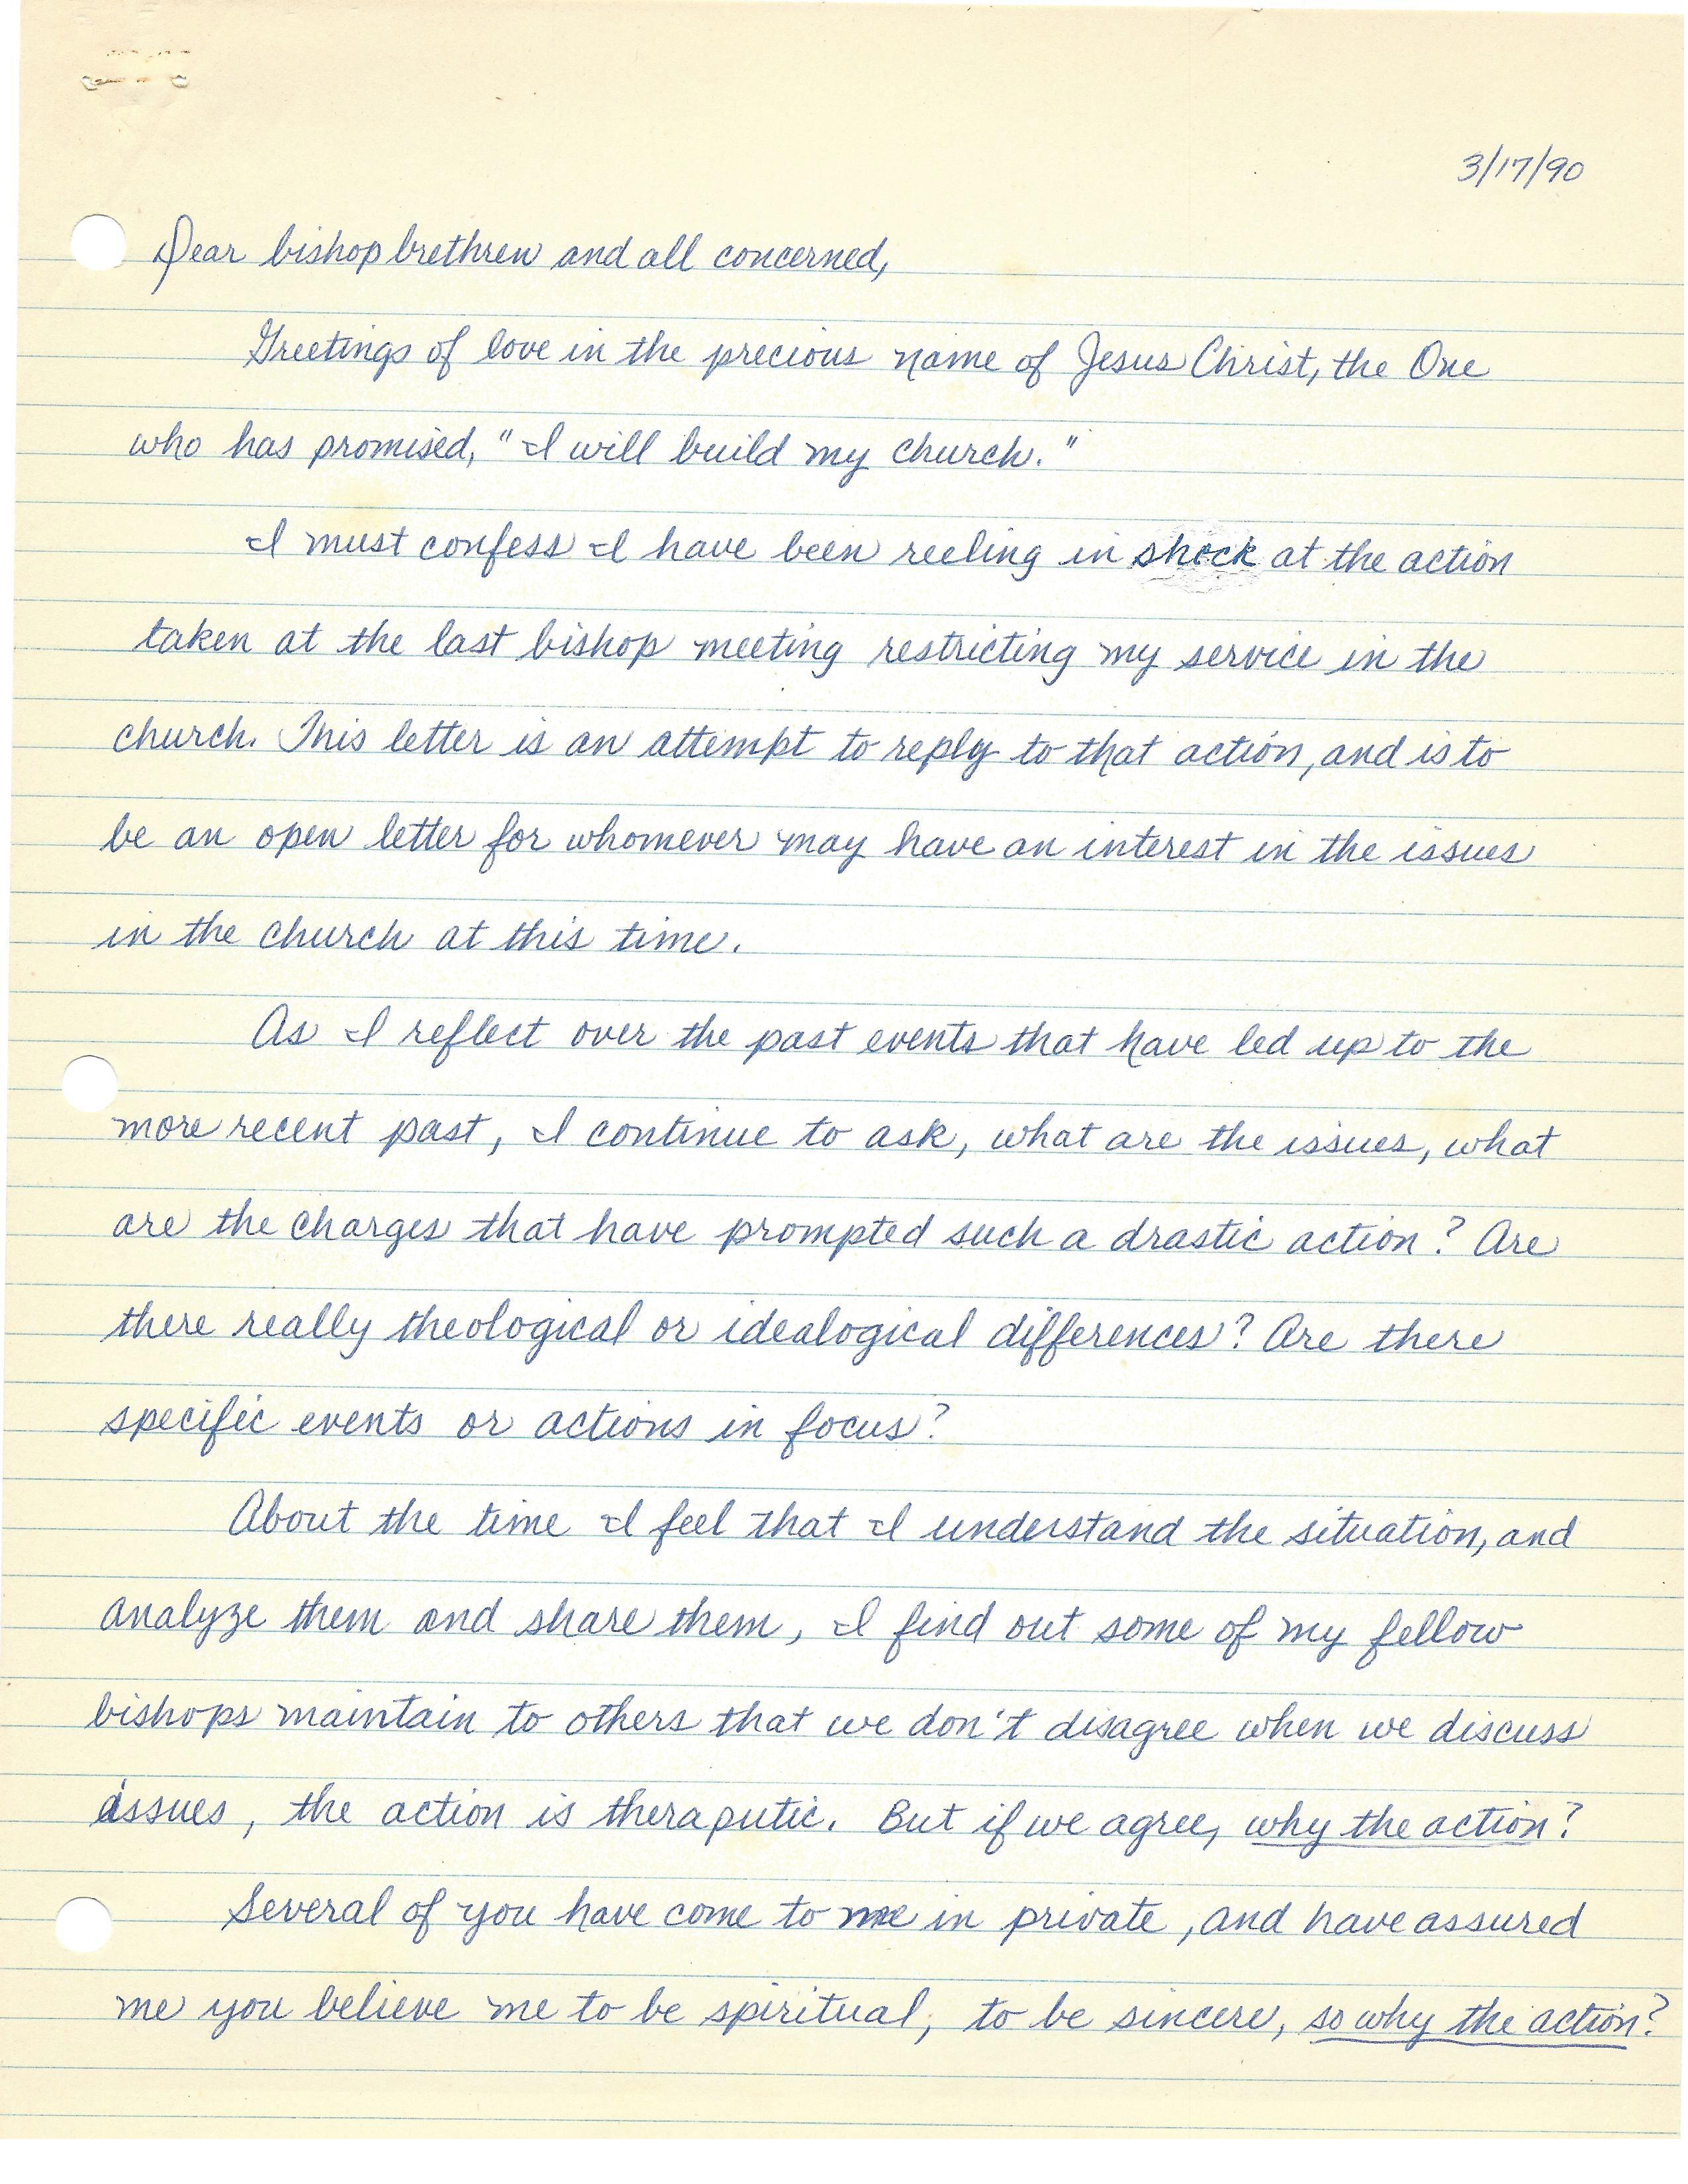 3/17/90
Dear bishop brethren and all concerned,
Greetings of love in the precious name of Jesus Christ, the One
who has promised, "I will build my church."
I must confess I have been reeling in shock at the action
taken at the last bishop meeting restricting my service in the
church. This letter is an attempt to reply to that action, and is to
be an open letter for whomever may have an interest in the issues
in the church at this time.
As I reflect over the past events that have led up to the
more recent past, I continue to ask, what are the issues, what
are the charges that have prompted such a drastic action? Are
there really theological or idealogical differences? Are there
specific events or actions in focus?
About the time I feel that I understand the situation, and
analyze them and share them, I find out some of my fellow
bishops maintain to others that we don't disagree when we discuss
issues, the action is theraputic. But if we agree, why the action?
Several of you have come to me in private, and have assured
me you believe me to be spiritual, to be sincere, so why the action?